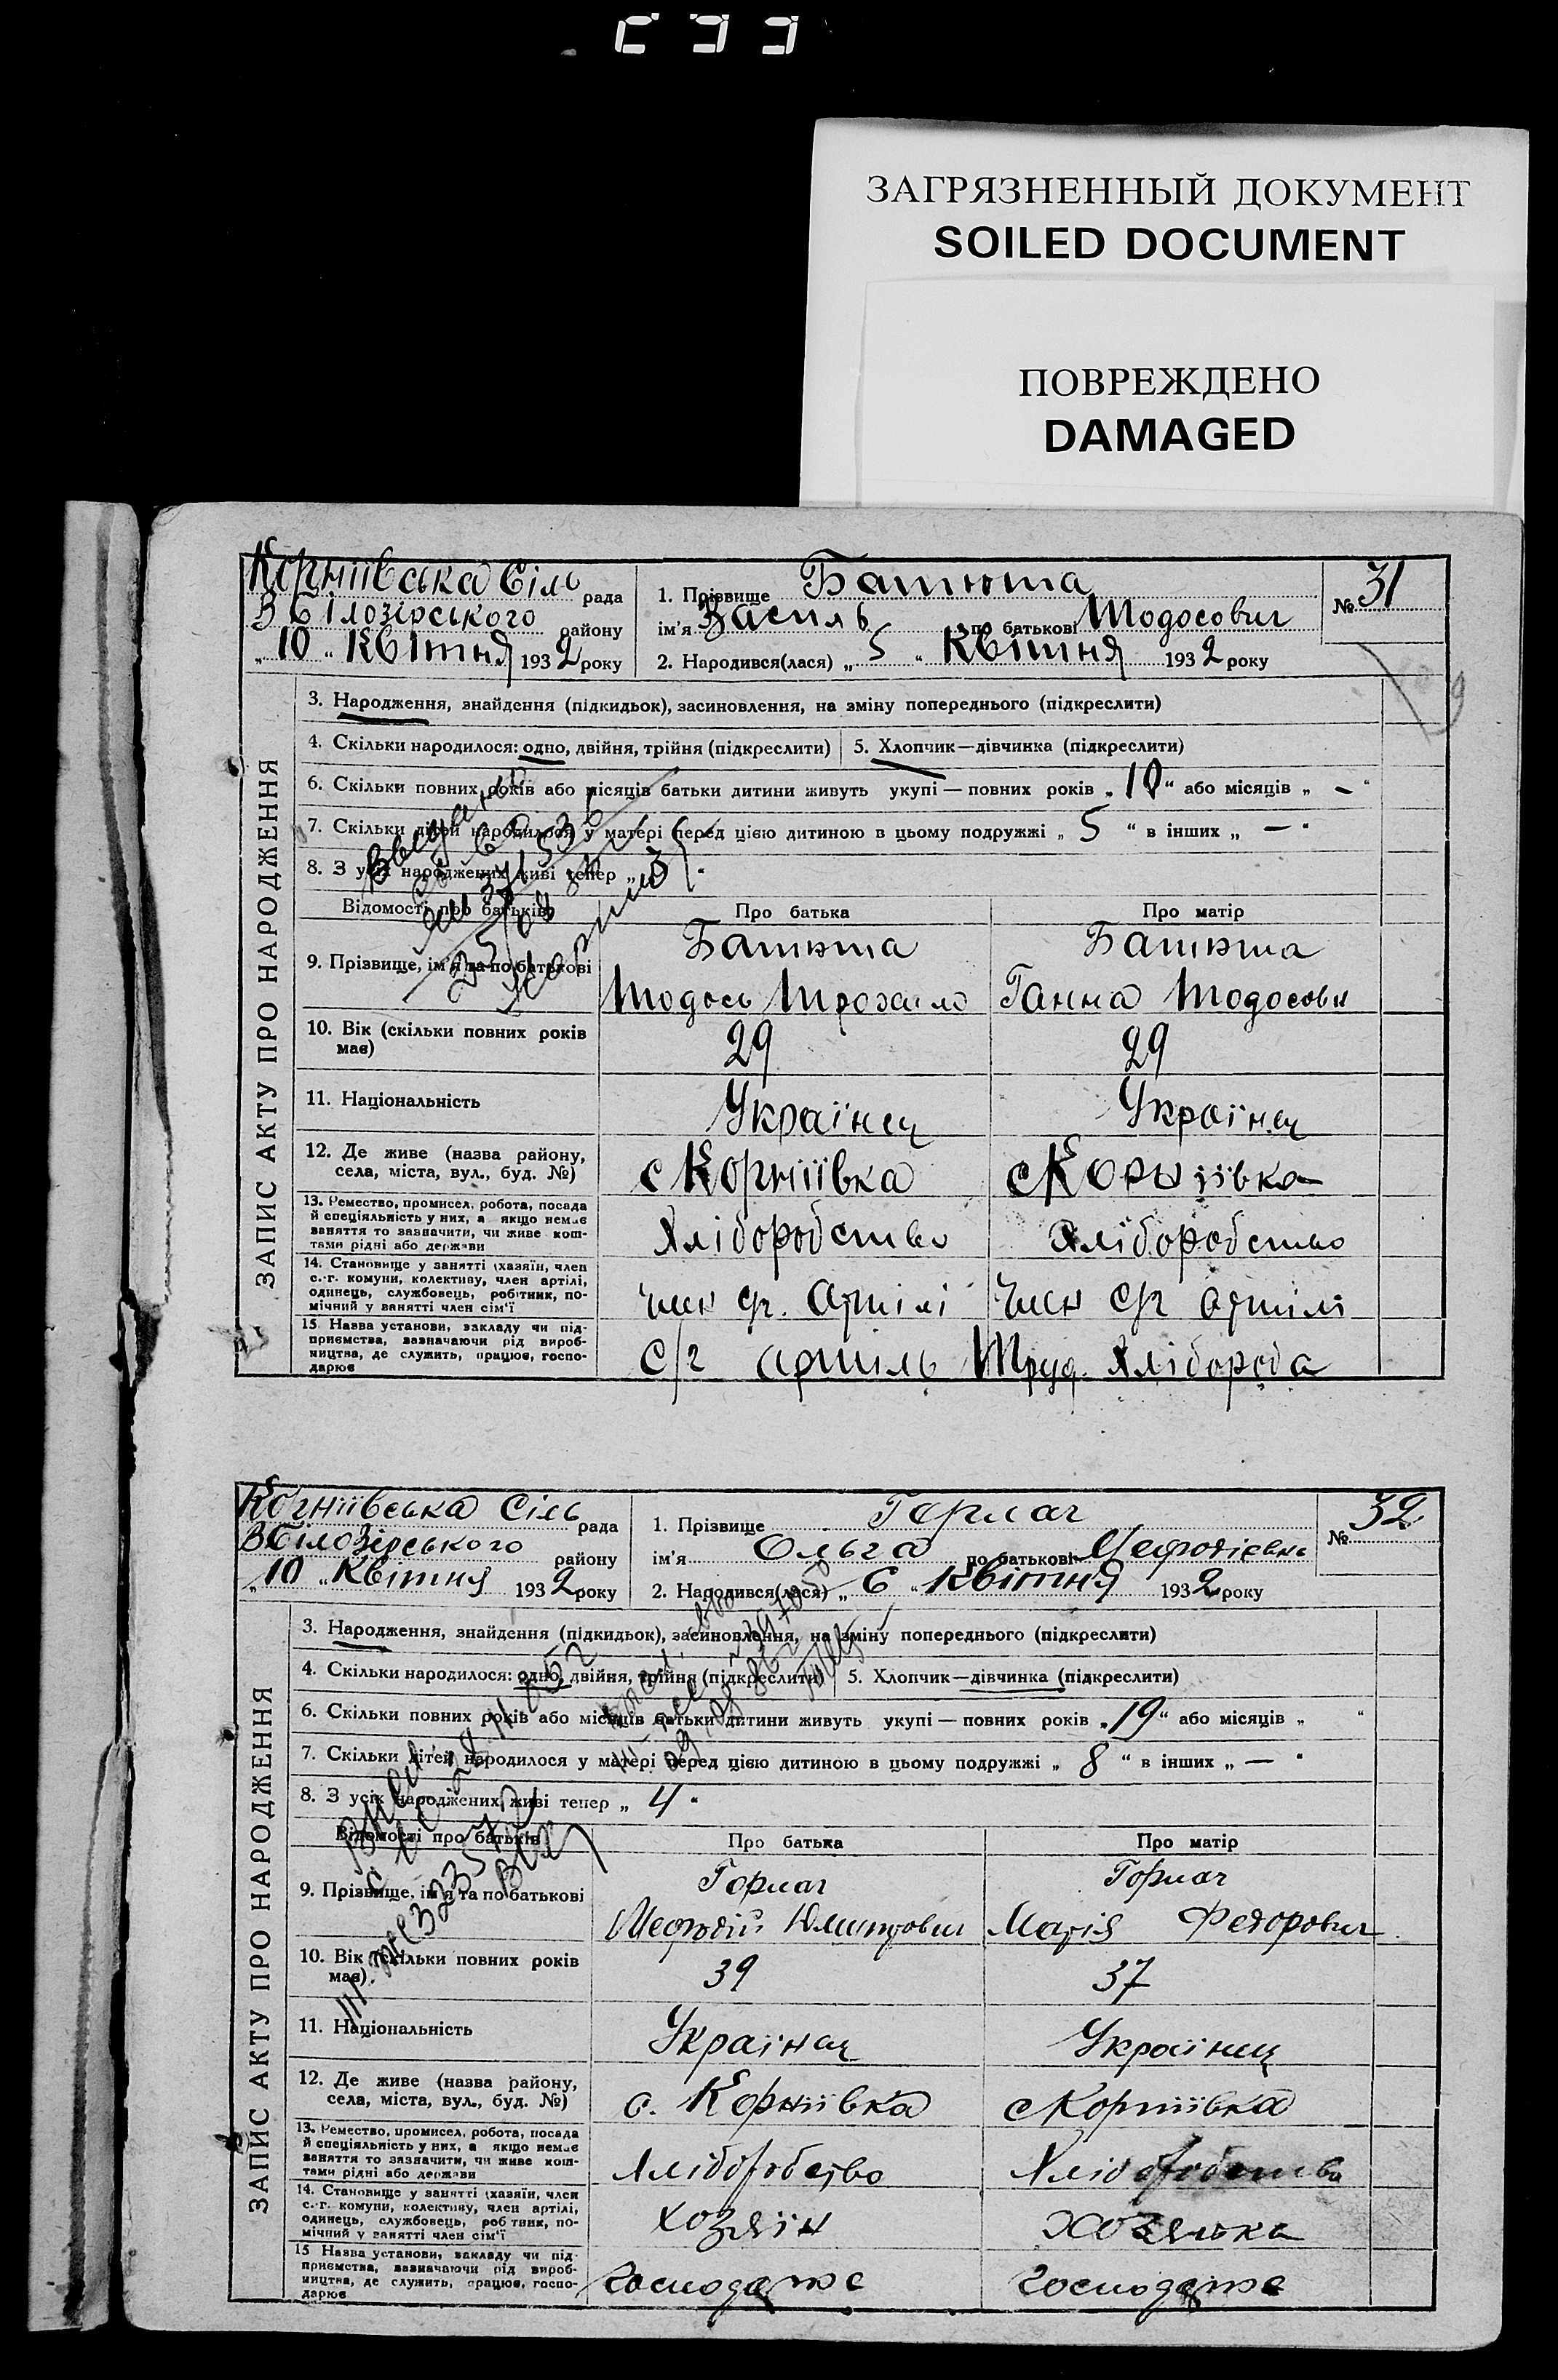 ЗАГРЯЗНЕННЫЙ ДОКУМЕНТ
SOILED DOCUMENT
ПОВРЕЖДЕНО
DAMAGED
Корніївська Сіль рада
В Білозірського району
„10“ Квітня 1932 року
1. Прізвище Батюта
ім'я Василь по батькові Тодосович
2. Народився(лася) „5“ Квітня 1932 року
№ 31
ЗАПИС АКТУ ПРО НАРОДЖЕННЯ
3. Народження, знайдення (підкидьок), засиновлення, на зміну попереднього (підкреслити)
4. Скільки народилося: одно, двійня, трійня (підкреслити) 5. Хлопчик—дівчинка (підкреслити)
6. Скільки повних років або місяців батьки дитини живуть укупі — повних років „10“ або місяців „ — “
7. Скільки дітей народилося у матері перед цією дитиною в цьому подружжі „ 5 “ в інших „ — “
8. З усіх народжених живі тепер „
Відомості про батьків Про батька Про матір
9. Прізвище, ім'я та по батькові
Батюта Батюта
Тодось Ганна Тодосовн
10. Вік (скільки повних років має) 29 29
11. Національність Українец Українец
12. Де живе (назва району,
села, міста, вул., буд. №) с Корніївка с Корніївка
13. Ремество, промисел, робота, посада
й спеціяльність у них, а якщо немає
заняття то зазначити, чи живе кош-
тами рідні або держави
Хліборобство Хліборобство
14. Становище у занятті (хазяїн, член
с.-г. комуни, колективу, член артілі,
одинець, службовець, робітник, по-
мічний у занятті член сім'ї
член с/г. артілі член с/г артілі
15 Назва установи, закладу чи під-
приємства, зазначаючи рід вироб-
ництва, де служить, працює, госпо-
дарює
с/г артіль Труд. Хлібороба
Корніївська Сіль рада
В Білозірського району
„10“ Квітня 1932 року
1. Прізвище Гармач
ім'я Ольга по батькові Мефодієвна
2. Народився(лася) „6“ Квітня 1932 року
№ 32
ЗАПИС АКТУ ПРО НАРОДЖЕННЯ
3. Народження, знайдення (підкидьок), засиновлення, на зміну попереднього (підкреслити)
4. Скільки народилося: одно, двійня, трійня (підкреслити) 5. Хлопчик—дівчинка (підкреслити)
6. Скільки повних років або місяців батьки дитини живуть укупі — повних років „19“ або місяців „ “
7. Скільки дітей народилося у матері перед цією дитиною в цьому подружжі „ 8 “ в інших „ — “
8. З усіх народжених живі тепер „ 4 “
Відомості про батьків Про батька Про матір
9. Прізвище, ім'я та по батькові
Гормач Гормач
Мефодій Марія Федорович
10. Вік (скільки повних років має) 39 37
11. Національність Українец Українец
12. Де живе (назва району,
села, міста, вул., буд. №) с. Корніївка с Корніївка
13. Ремество, промисел, робота, посада
й спеціяльність у них, а якщо немає
заняття то зазначити, чи живе кош-
тами рідні або держави
Хліборобство Хліборобство
14. Становище у занятті (хазяїн, член
с.-г. комуни, колективу, член артілі,
одинець, службовець, робітник, по-
мічний у занятті член сім'ї
хозяїн хозяйка
15 Назва установи, закладу чи під-
приємства, зазначаючи рід вироб-
ництва, де служить, працює, госпо-
дарює
господарює господарює